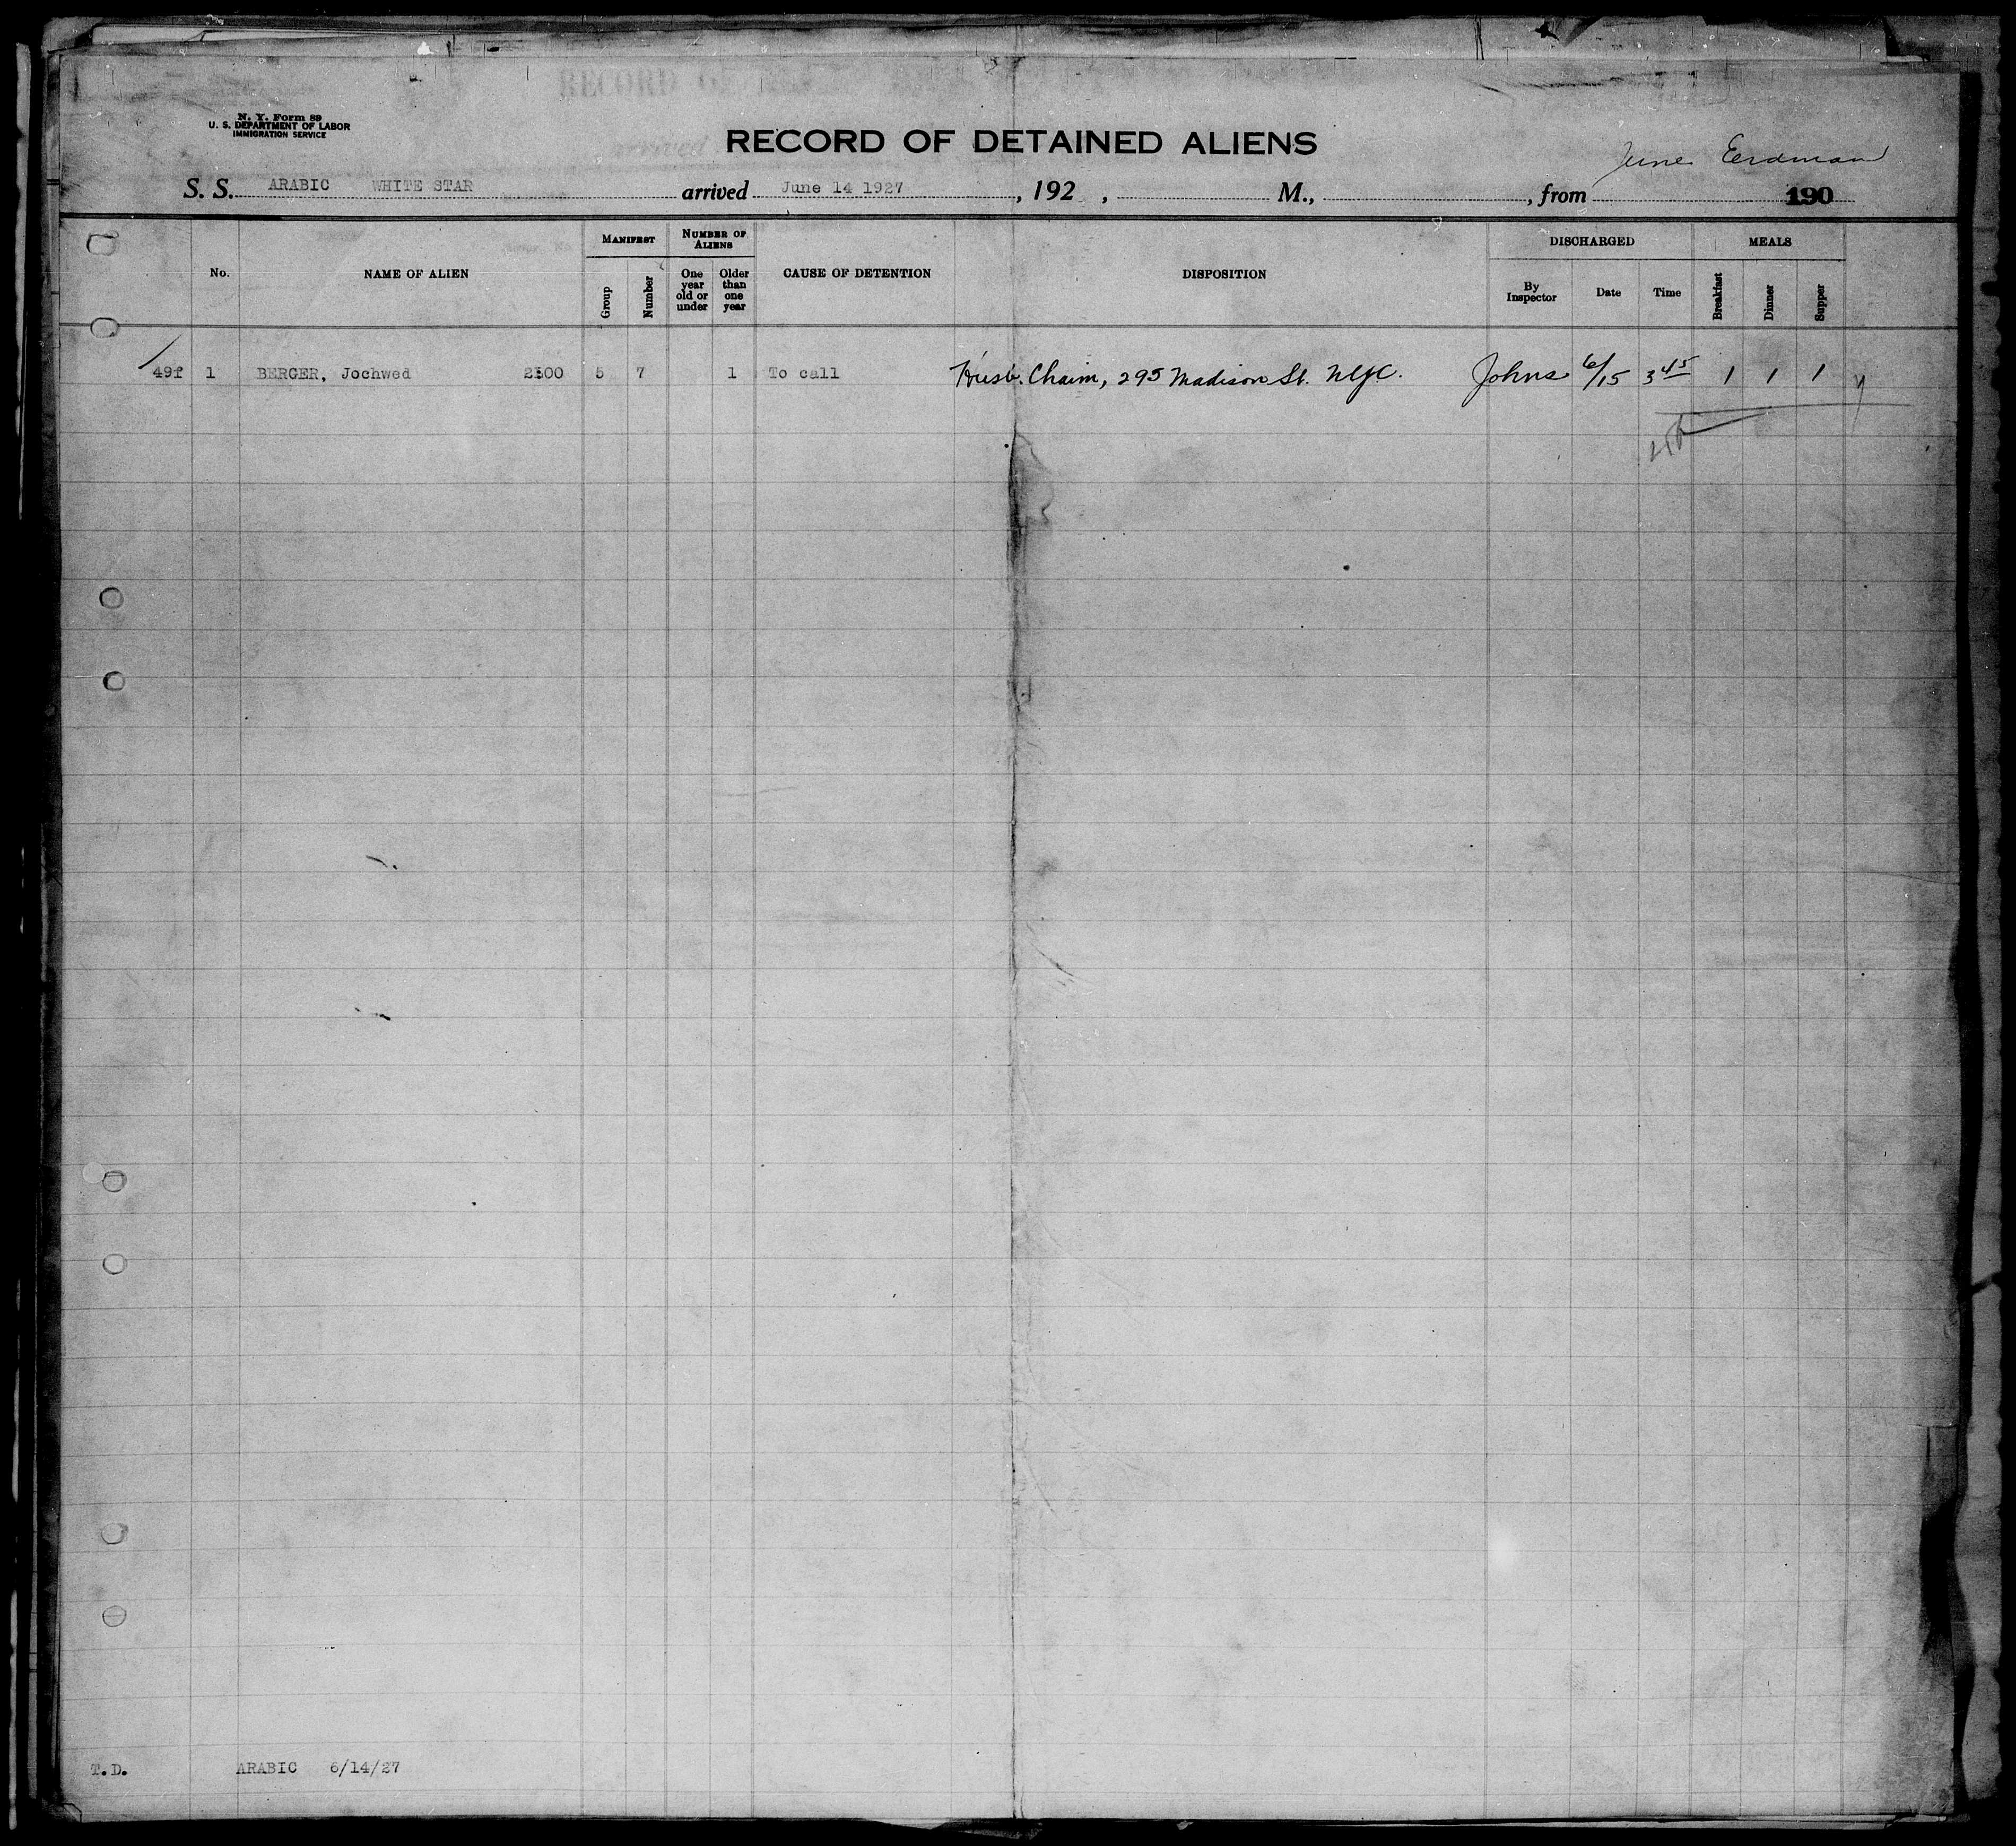 N. Y. Form 89
U. S. DEPARTMENT OF LABOR
IMMIGRATION SERVICE
RECORD OF DETAINED ALIENS
June Erdman
S. S. ARABIC WHITE STAR arrived June 14 1927, 192 , M., , from 190
No. NAME OF ALIEN MANIFEST Group Number NUMBER OF ALIENS One year old or under Older than one year CAUSE OF DETENTION DISPOSITION DISCHARGED By Inspector Date Time MEALS Breakfast Dinner Supper
49f 1 BERGER, Jochwed 2300 5 7 1 To call Husb. Chaim, 295 Madison St. NYC. Johns 6/15 3 45 1 1 1
T.D. ARABIC 6/14/27